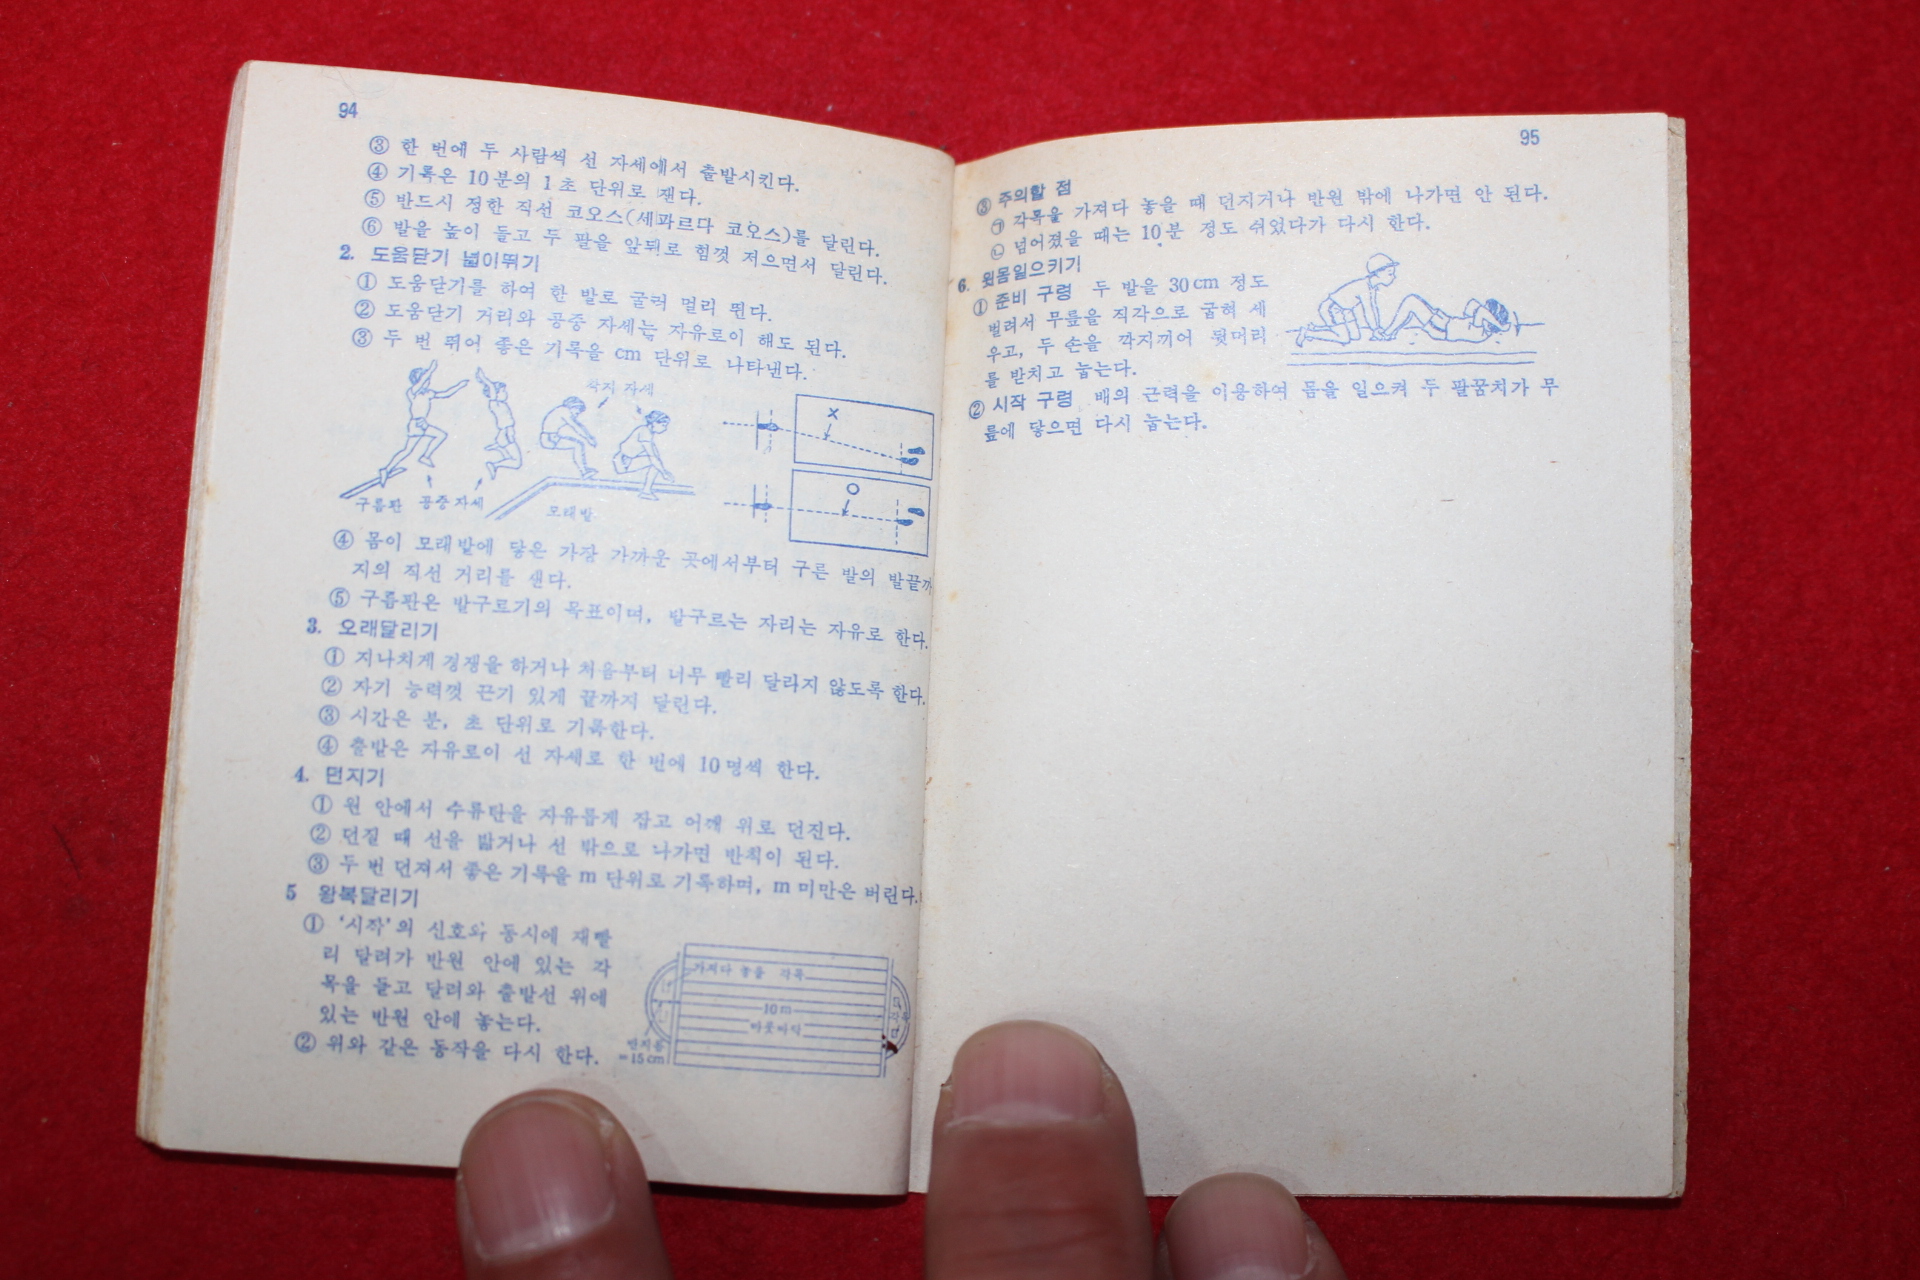 94
③ 한 번에 두 사람씩 선 자세에서 출발시킨다.
④ 기록은 10분의 1초 단위로 잰다.
⑤ 반드시 정한 직선 코오스(세파르다 코오스)를 달린다.
⑥ 발을 높이 들고 두 팔을 앞뒤로 힘껏 저으면서 달린다.
2. 도움닫기 넓이뛰기
① 도움닫기를 하여 한 발로 굴러 멀리 뛴다.
② 도움닫기 거리와 공중 자세는 자유로이 해도 된다.
③ 두 번 뛰어 좋은 기록을 cm 단위로 나타낸다.
착지 자세
×
○
구름판 공중자세
모래밭
④ 몸이 모래밭에 닿은 가장 가까운 곳에서부터 구른 발의 발끝까
지의 직선 거리를 잰다.
⑤ 구름판은 발구르기의 목표이며, 발구르는 자리는 자유로 한다.
3. 오래달리기
① 지나치게 경쟁을 하거나 처음부터 너무 빨리 달리지 않도록 한다.
② 자기 능력껏 끈기 있게 끝까지 달린다.
③ 시간은 분, 초 단위로 기록한다.
④ 출발은 자유로이 선 자세로 한 번에 10명씩 한다.
4. 던지기
① 원 안에서 수류탄을 자유롭게 잡고 어깨 위로 던진다.
② 던질 때 선을 밟거나 선 밖으로 나가면 반칙이 된다.
③ 두 번 던져서 좋은 기록을 m 단위로 기록하며, m 미만은 버린다.
5 왕복달리기
① ‘시작’의 신호와 동시에 재빨
리 달려가 반원 안에 있는 각
목을 들고 달려와 출발선 위에
있는 반원 안에 놓는다.
② 위와 같은 동작을 다시 한다.
가져다 놓을 각목
10m
마룻바닥
반지름
=15cm
95
③ 주의할 점
㉠ 각목을 가져다 놓을 때 던지거나 반원 밖에 나가면 안 된다.
㉡ 넘어졌을 때는 10분 정도 쉬었다가 다시 한다.
6. 윗몸일으키기
① 준비 구령 두 발을 30cm 정도
벌려서 무릎을 직각으로 굽혀 세
우고, 두 손을 깍지끼어 뒷머리
를 받치고 눕는다.
② 시작 구령 배의 근력을 이용하여 몸을 일으켜 두 팔꿈치가 무
릎에 닿으면 다시 눕는다.